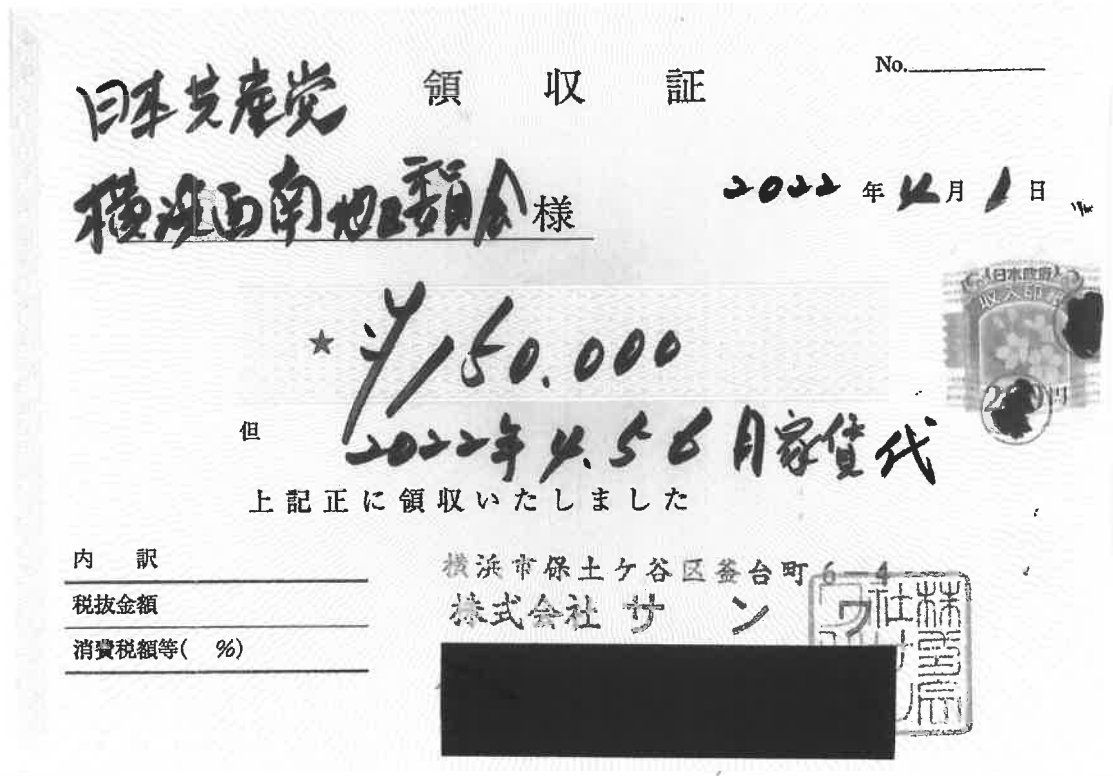 領収証
No.
日本共産党
横浜西南地区委員会様
2022年4月1日
日本政府
収入印
★ ¥150.000
但 2022年4.5 6月家賃代
上記正に領収いたしました
内訳
税抜金額
消費税額等( %)
横浜市保土ケ谷区釜台町6-4
株式会社サンワ